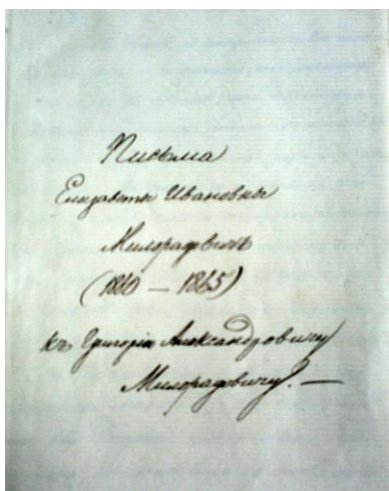 Письма
Елизаветы Ивановны
Милорадовичъ
(1860 — 1865)
къ Григорію Александровичу
Милорадовичу. —